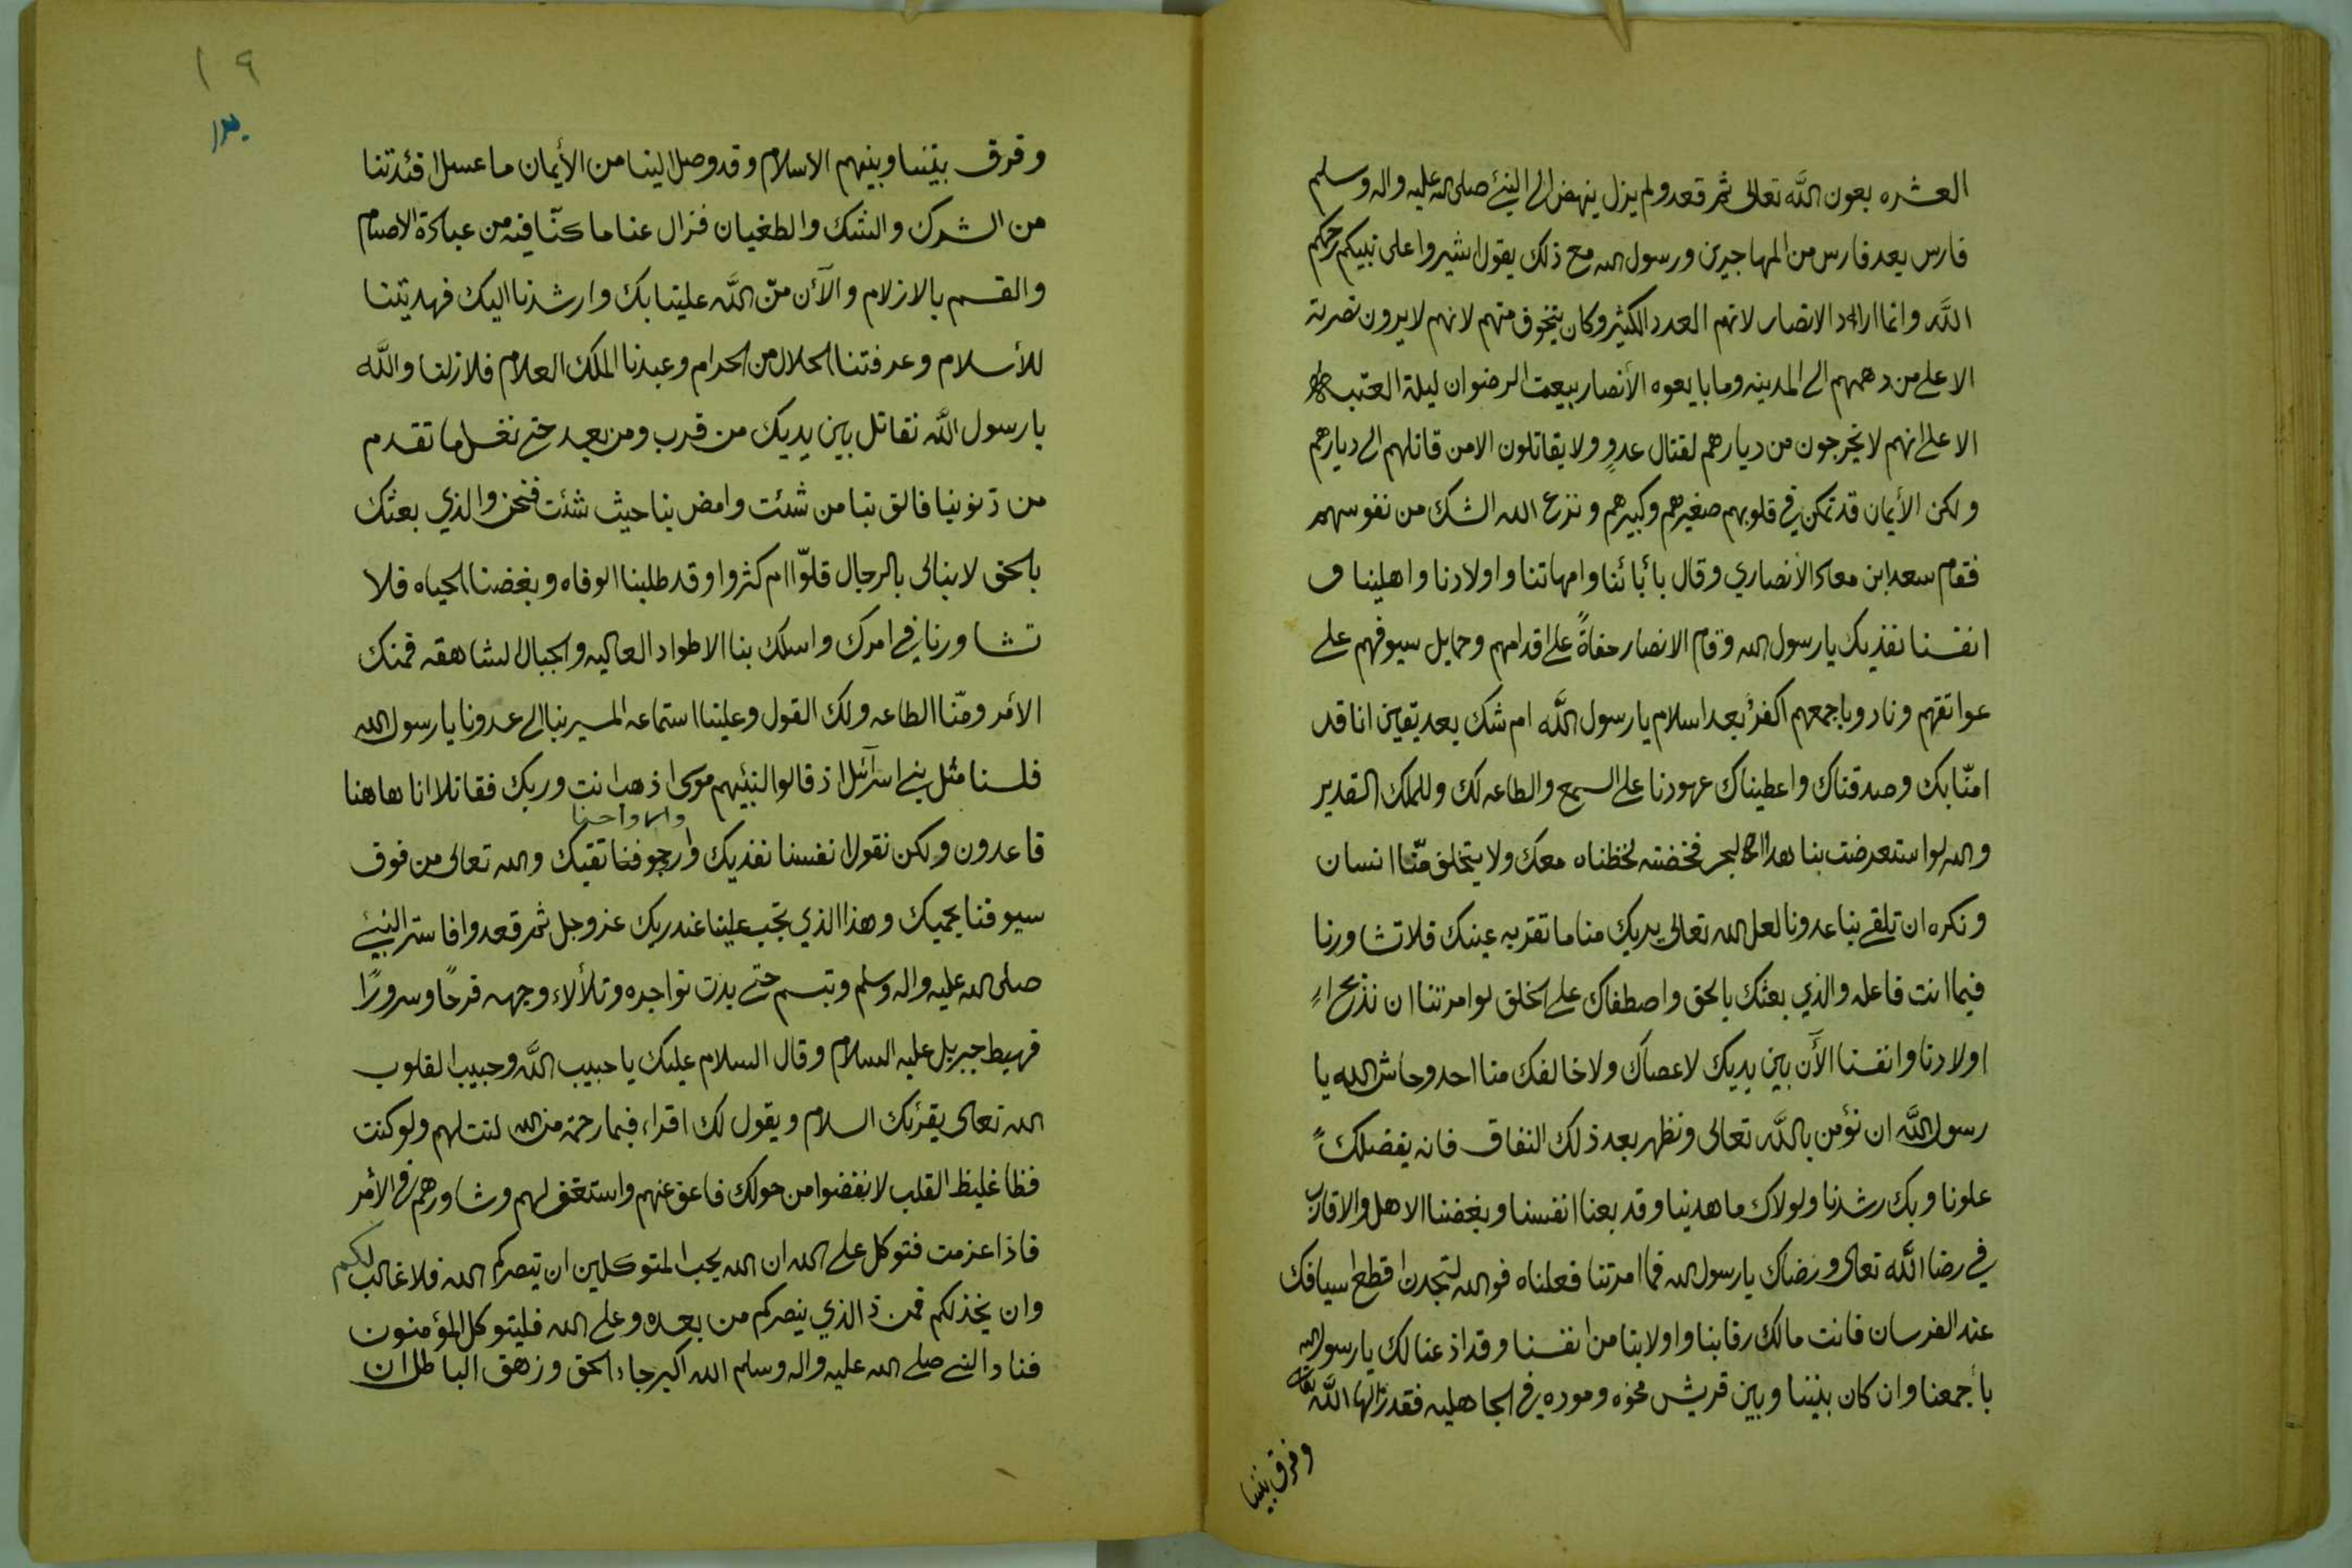 العشره بعون الله تعالى ثم قعد ولم يزل ينهض الى النبئ صلى الله عليه واله وسلم
فارس بعد فارس من المهاجرين ورسول الله مع ذلك يقول اشيروا على نبيكم رحمكم
الله وانما اراد الانصار لانهم العدد الكثير وكان يتخوف منهم لانهم لا يرون نصرته
الا على من دهمهم الى المدينه وما بايعوه الأنصار بيعت الرضوان ليلة العتبه
الا على انهم لا يخرجون من ديارهم لقتال عدوٍ ولا يقاتلون الا من قاتلهم الى ديارهم
ولكن الأيمان قد تمكن في قلوبهم صغيرهم وكبيرهم ونزع الله الشك من نفوسهم
فقام سعد ابن معاذ الأنصاري وقال بأبائنا وامهاتنا واولادنا واهلينا و
انفسنا نفديك يا رسول الله وقام الانصار حفاةً على اقدامهم وحمايل سيوفهم على
عواتقهم ونادوا باجمعهم اكفرٌ بعد اسلام يا رسول الله ام شك بعد يقين انا قد
امنّا بك وصدقناك واعطيناك عهودنا على السمع والطاعه لك وللملك القدير
والله لو استعرضت بنا هذا البحر فخضته لخظناه معك ولا يتخلف منّا انسان
ونكره ان تلقى بنا عدونا لعل الله تعالى يريك منا ما تقر به عينك فلا تشاورنا
فيما انت فاعله والذي بعثك بالحق واصطفاك على الخلق لو امرتنا ان نذبح
اولادنا وانفسنا الأن بين يديك لا عصاك ولا خالفك منا احد وحاش الله يا
رسول الله ان نؤمن بالله تعالى ونظهر بعد ذلك النفاق فانه بفضلك
علونا وبك رشدنا ولولاك ما هدينا وقد بعنا انفسنا وبغضنا الاهل والاقارب
في رضا الله تعالى ورضاك يا رسول الله فما امرتنا فعلناه فوالله لتجدن اقطع اسيافك
عند الفرسان فانت مالك رقابنا واولا بنا من انفسنا وقد اذعنا لك يا رسول الله
بأجمعنا وان كان بيننا وبين قريش مخوه وموده في الجاهليه فقد زالها الله تعالى
وفرق بيننا
١٩
وفرق بيننا وبينهم الاسلام وقد وصل الينا من الأيمان ما غسل افئدتنا
من الشرك والشك والطغيان فزال عنا ما كنّا فيه من عبادة الاصنام
والقسم بالازلام والآن منّ الله علينا بك وارشدنا اليك فهديتنا
للأسلام وعرفتنا الحلال من الحرام وعبدنا الملك العلام فلا زلنا والله
يا رسول الله نقاتل بين يديك من قرب ومن بعد حتى نغسل ما تقدم
من ذنوبنا فالق بنا من شئت وامض بنا حيث شئت فنحن والذي بعثك
بالحق لا نبالى بالرجال قلوّا ام كثروا وقد طلبنا الوفاه وبغضنا الحياه فلا
تشاورنا في امرك واسلك بنا الاطواد العاليه والجبال الشاهقه فمنك
الأمر ومنّا الطاعه ولك القول وعلينا استماعه المسير بنا الى عدونا يا رسول الله
فلسنا مثل بني اسرآئل اذ قالوا لنبئيهم موسى اذهب انت وربك فقاتلا انا هاهنا
وارواحنا
قاعدون ولكن نقول انفسنا نفديك وارجو فنا تقيك والله تعالى من فوق
سيوفنا يحميك وهذا الذي تجب علينا عند ربك عز وجل ثم قعدوا فاستر النبئي
صلى الله عليه واله وسلم وتبسم حتى بدت نواجده وتلألاء وجهه فرحًا وسرورًا
فهبط جبريل عليه السلام وقال السلام عليك يا حبيب الله وحبيب القلوب
الله تعالى يقرئك السلام ويقول لك اقراء فبما رحمة من الله لنت لهم ولو كنت
فظا غليظ القلب لانفضوا من حولك فاعف عنهم واستغفر لهم وشاورهم في الأمر
فاذا عزمت فتوكل على الله ان الله يحب المتوكلين ان ينصركم الله فلا غالب لكم
وان يخذلكم فمن ذ الذي ينصركم من بعده وعلى الله فليتوكل المؤمنون
فنادا النبي صلى الله عليه واله وسلم الله اكبر جاء الحق وزهق الباطل ان